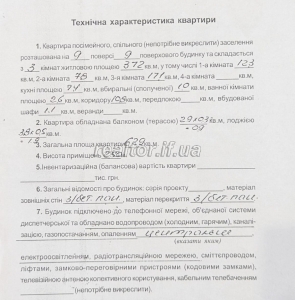 Технічна характеристика квартири
1. Квартира посімейного, спільного (непотрібне викреслити) заселення
розташована на 9 поверсі 9 поверхового будинку та складається
з 3 кімнат житловою площею 372 кв.м, у тому числі 1-а кімната 123
кв.м, 2-а кімната 78 кв.м, 3-я кімната 171 кв.м, 4-а кімната кв.м,
кухні площею 74 кв.м, вбиральні (сполученої) 10 кв.м, ванної кімнати
площею 26 кв.м, коридору 108 кв.м, передпокою кв.м, вбудованої
шафи 1.1 кв.м, веранди кв.м.
2. Квартира обладнана балконом (терасою) кв.м, лоджією
кв.м.
3. Загальна площа квартири 629 кв.м.
4. Висота приміщень
realtor.if.ua
5. Інвентаризаційна (балансова) вартість квартири
тис. грн.
6. Загальні відомості про будинок: серія проекту матеріал
зовнішніх стін з/бет пан. матеріал перекриття з/бет пан.
7. Будинок підключено до телефонної мережі, об'єднаної системи
диспетчерської та обладнано водопроводом (холодним, гарячим), каналі-
зацією, газопостачанням, опаленням центральне
(вказати яким)
електроосвітленням, радіотрансляційною мережею, сміттєпроводом,
ліфтами, замково-переговорними пристроями (кодовими замками),
телевізійною антеною колективного користування, кабельним телебаченням
(непотрібне викреслити).